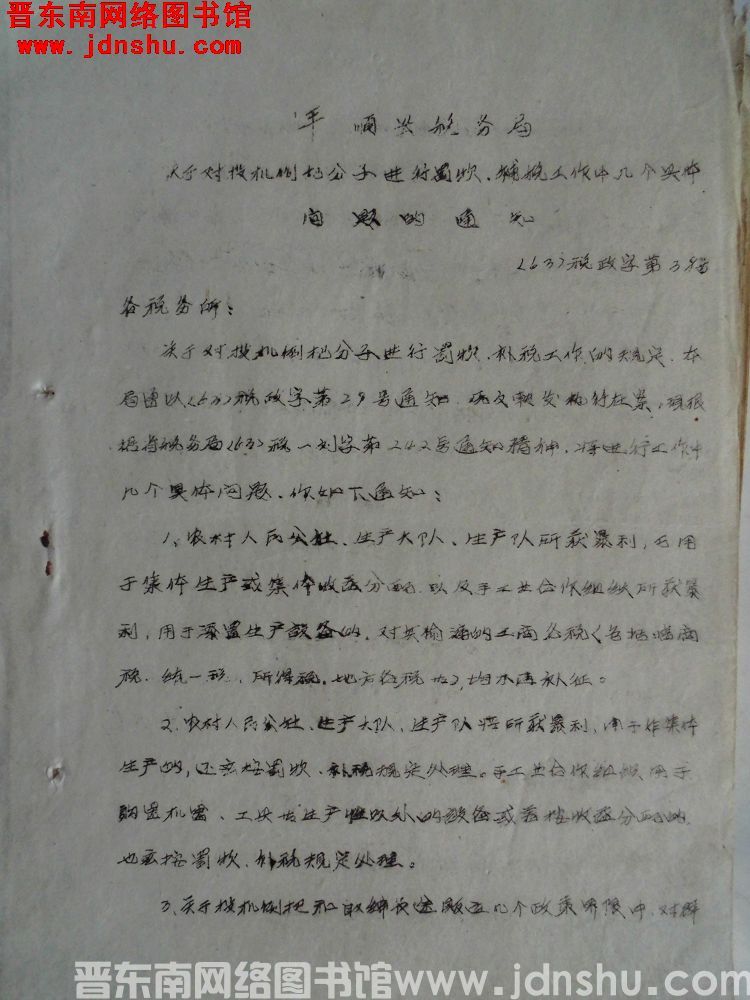 晋东南网络图书馆
www.jdnshu.com
平顺县税务局
关于对投机倒把分子进行罚款、补税工作中几个具体
问题的通知
(63)税政字第39号
各税务所:
关于对投机倒把分子进行罚款、补税工作的规定,本
局曾以(63)税政字第29号通知
税务局(63)税一刘字第242号通知精神,进行工作中
几个具体问题,作如下通知:
1、农村人民公社、生产大队、生产队所获暴利,已用
于集体生产或集体收益分配,以及手工业合作组织所获暴
利,用于添置生产设备的,对其偷漏的工商各税(包括临商
税、统一税、所得税、地方各税),均不再补征。
2、农村人民公社、生产大队、生产队将所获暴利,用于作集体
生产的,还应按罚款、补税规定处理。手工业合作组织用于
购置机器、工具等生产性以外的设备或者按收益分配的,
也应按罚款、补税规定处理。
3、关于投机倒把和取缔长途贩运几个政策界限中,对群
晋东南网络图书馆www.jdnshu.com